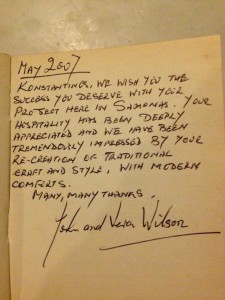 MAY 2007
KONSTANTINOS, WE WISH YOU THE
SUCCESS YOU DESERVE WITH YOUR
PROJECT HERE IN SAMONAS. YOUR
HOSPITALITY HAS BEEN DEEPLY
APPRECIATED AND WE HAVE BEEN
TREMENDOUSLY IMPRESSED BY YOUR
RE-CREATION OF TRADITIONAL
CRAFT AND STYLE, WITH MODERN
COMFORTS.
MANY, MANY THANKS.
John and Vera Wilson